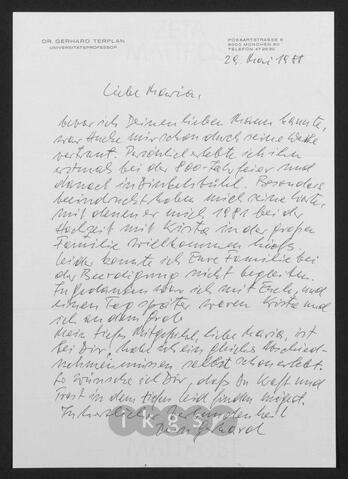 DR. GERHARD TERPLAN
UNIVERSITÄTSPROFESSOR
POSSARTSTRASSE 6
8000 MÜNCHEN 80
TELEFON 47 26 30
29. Mai 1988
Liebe Maria,
bevor ich Deinen lieben Mann kannte,
war Harke mir schon durch seine Werke
vertraut. Persönlich erlebte ich ihn
erstmals bei der 800-Jahrfeier und
danach in Dinkelsbühl. Besonders
beeindruckt haben mich seine Worte,
mit denen er mich 1981 bei der
Hochzeit mit Krista in der großen
Familie willkommen hieß.
Leider konnte ich Eure Familie bei
der Beerdigung nicht begleiten.
In Gedanken war ich mit Euch, und
einen Tag später waren Krista und
ich an dem Grab.
Mein tiefes Mitgefühl, liebe Maria, ist
bei Dir, habe ich ein gleiches Abschied-
nehmenmüssen selbst schon erlebt.
So wünsche ich Dir, daß Du Kraft und
Trost in dem tiefen Leid finden mögest.
In herzlicher Verbundenheit
Dein Gerhard
ikgs